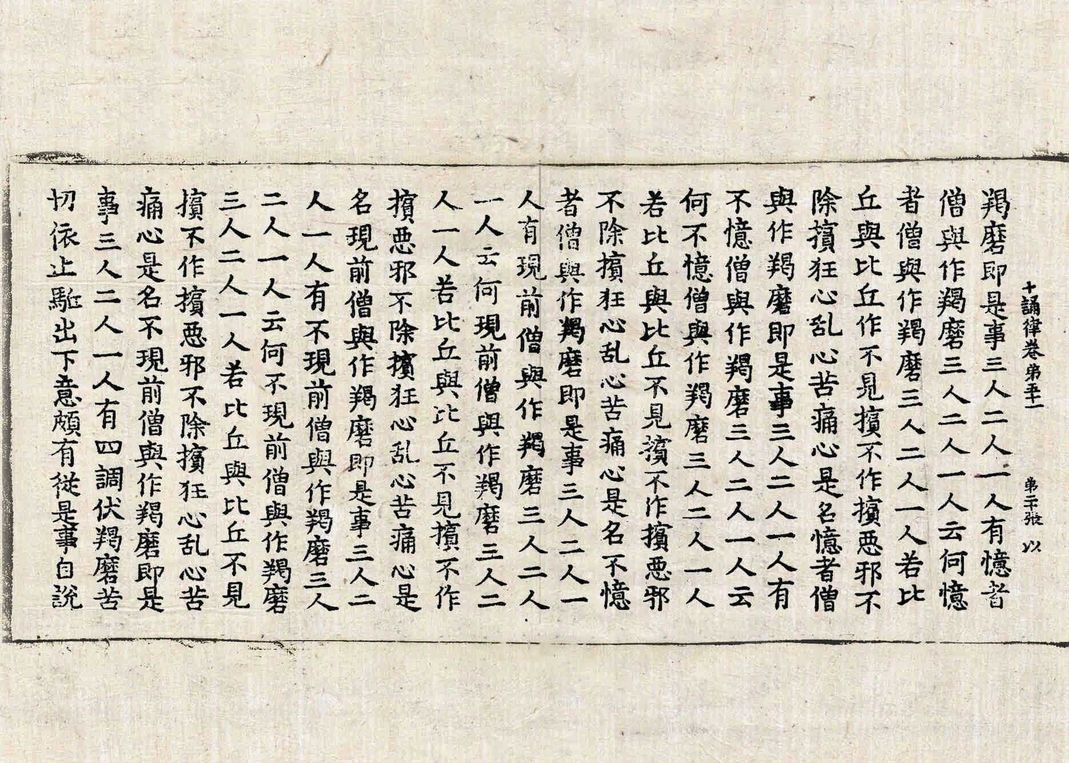 十誦律卷第五十一 第二十張 以
羯磨即是事三人二人一人有憶者
僧與作羯磨三人二人一人云何憶
者僧與作羯磨三人二人一人若比
丘與比丘作不見擯不作擯惡邪不
除擯狂心乱心苦痛心是名憶者僧
與作羯磨即是事三人二人一人有
不憶僧與作羯磨三人二人一人云
何不憶僧與作羯磨三人二人一人
若比丘與比丘不見擯不作擯惡邪
不除擯狂心乱心苦痛心是名不憶
者僧與作羯磨即是事三人二人一
人有現前僧與作羯磨三人二人
一人云何現前僧與作羯磨三人二
人一人若比丘與比丘不見擯不作
擯惡邪不除擯狂心乱心苦痛心是
名現前僧與作羯磨即是事三人二
人一人有不現前僧與作羯磨三人
二人一人云何不現前僧與作羯磨
三人二人一人若比丘與比丘不見
擯不作擯惡邪不除擯狂心乱心苦
痛心是名不現前僧與作羯磨即是
事三人二人一人有四調伏羯磨苦
切依止駈出下意頗有從是事自說